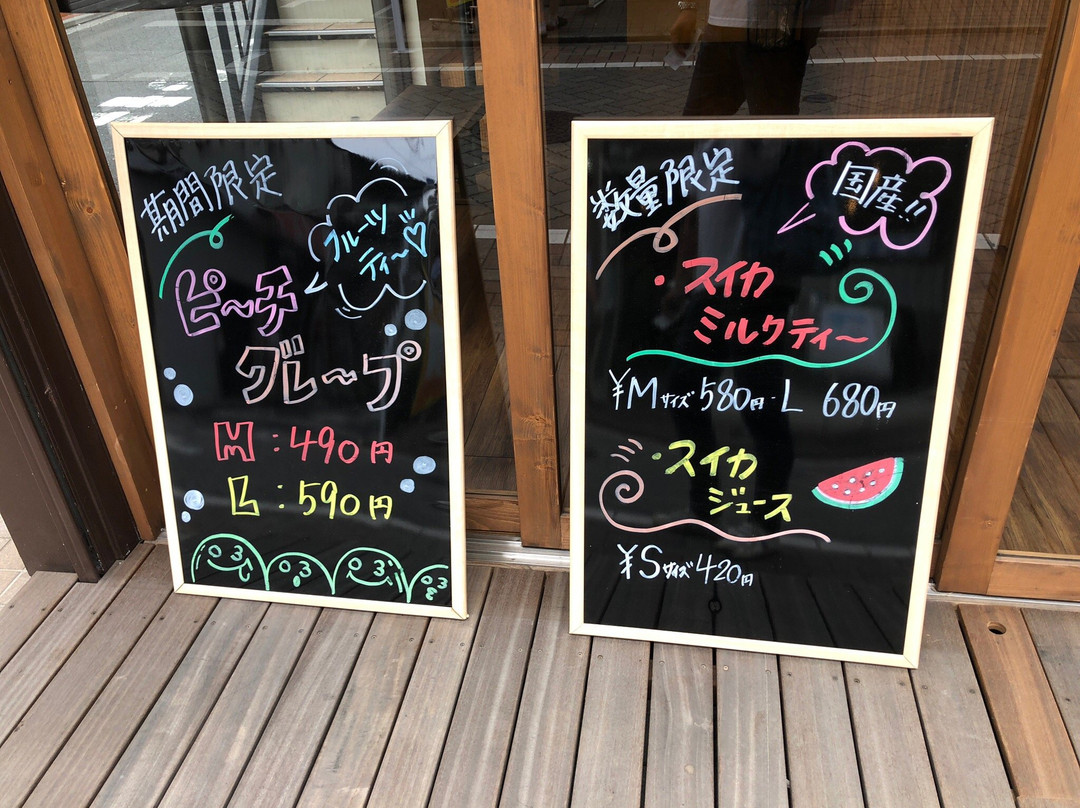 期間限定
フルーツ
ティ〜♡
ピ〜チ
グレ〜プ
M：490円
L：590円
数量限定
国産!!
・スイカ
ミルクティ〜
¥Mサイズ580円・L 680円
・スイカ
ジュース
¥Sサイズ420円